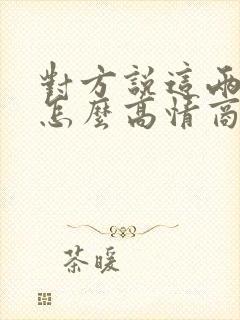 對方說這兩
怎麼高情商
茶暖